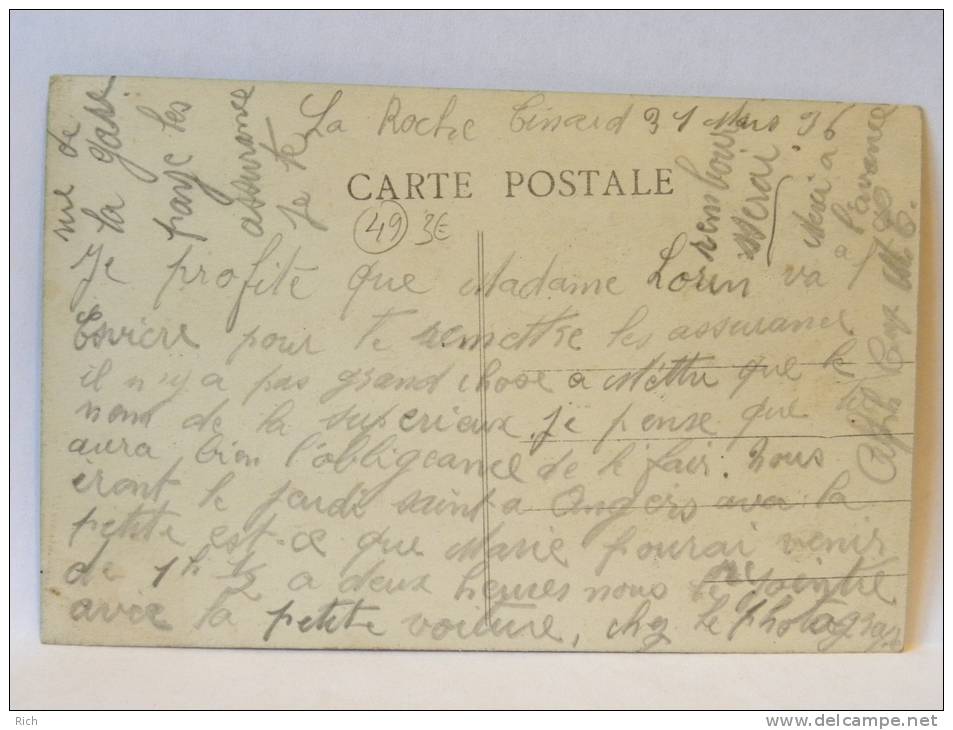 La Roche Tinard 31 Mars 36
CARTE POSTALE
49 3€
Je profite que Madame Lorin va a
Esvière pour te remettre les assurance
il n'y a pas grand chose a mettre que le
nom de la superieux. je pense que tu
aura bien l'obligeance de le fair. nous
iront le jeudi saint a Angers avec la
petite est-ce que Marie pourai venir
de 1h ½ a deux heures nous rejointre
avec la petite voiture, chez le Photogra
rue de
la gare
paye les
assurance
Je te
rembour
sserai
Merci a
l'avance
Rich
www.delcampe.net